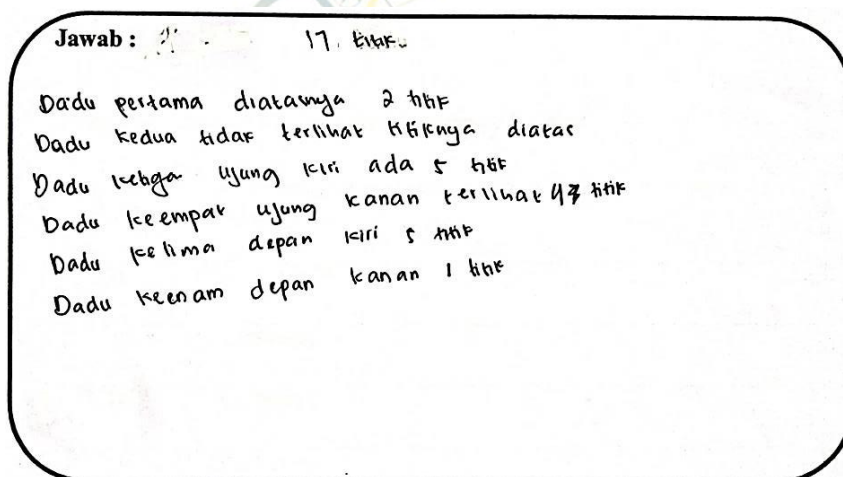 Jawab : 17 titik
Dadu pertama diatasnya 2 titik
Dadu kedua tidak terlihat titiknya diatas
Dadu ketiga ujung kiri ada 5 titik
Dadu keempat ujung kanan terlihat 4 titik
Dadu kelima depan kiri 5 titik
Dadu keenam depan kanan 1 titik